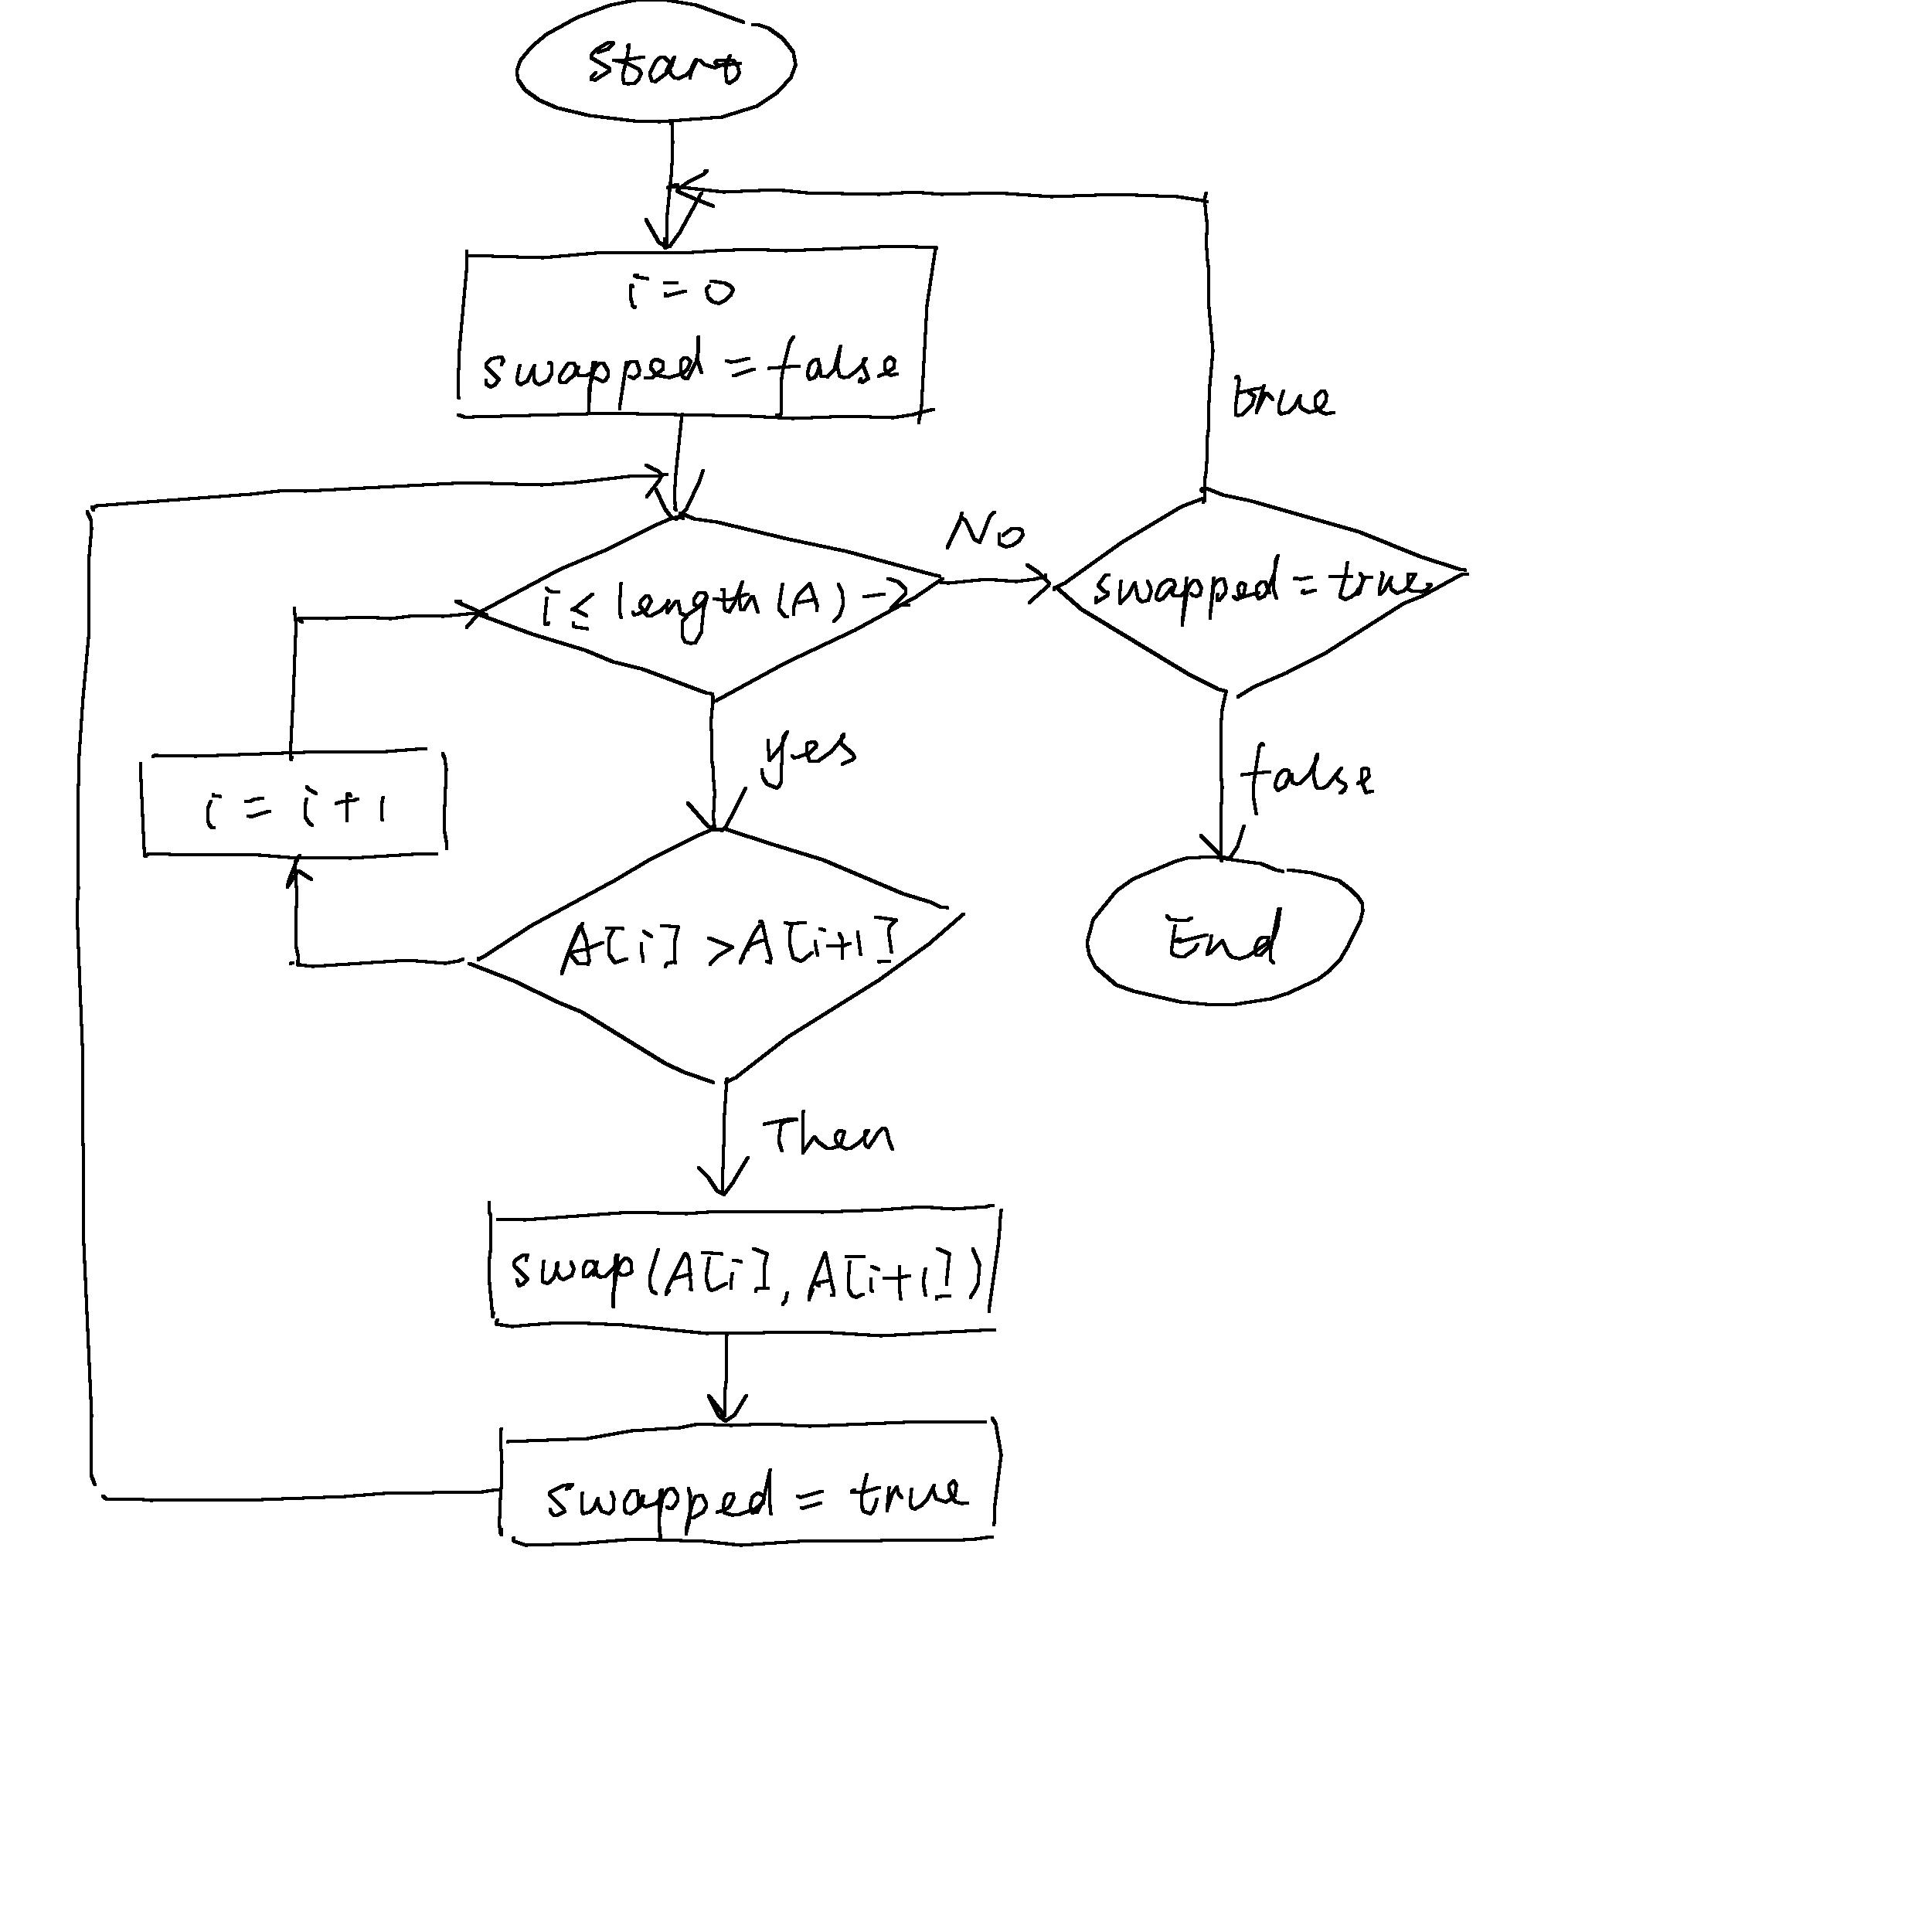 start
i = 0
swapped = false
true
No
i ≤ length(A) - 2
swapped = true
yes
false
i = i + 1
A[i] > A[i+1]
End
Then
swap(A[i], A[i+1])
swapped = true